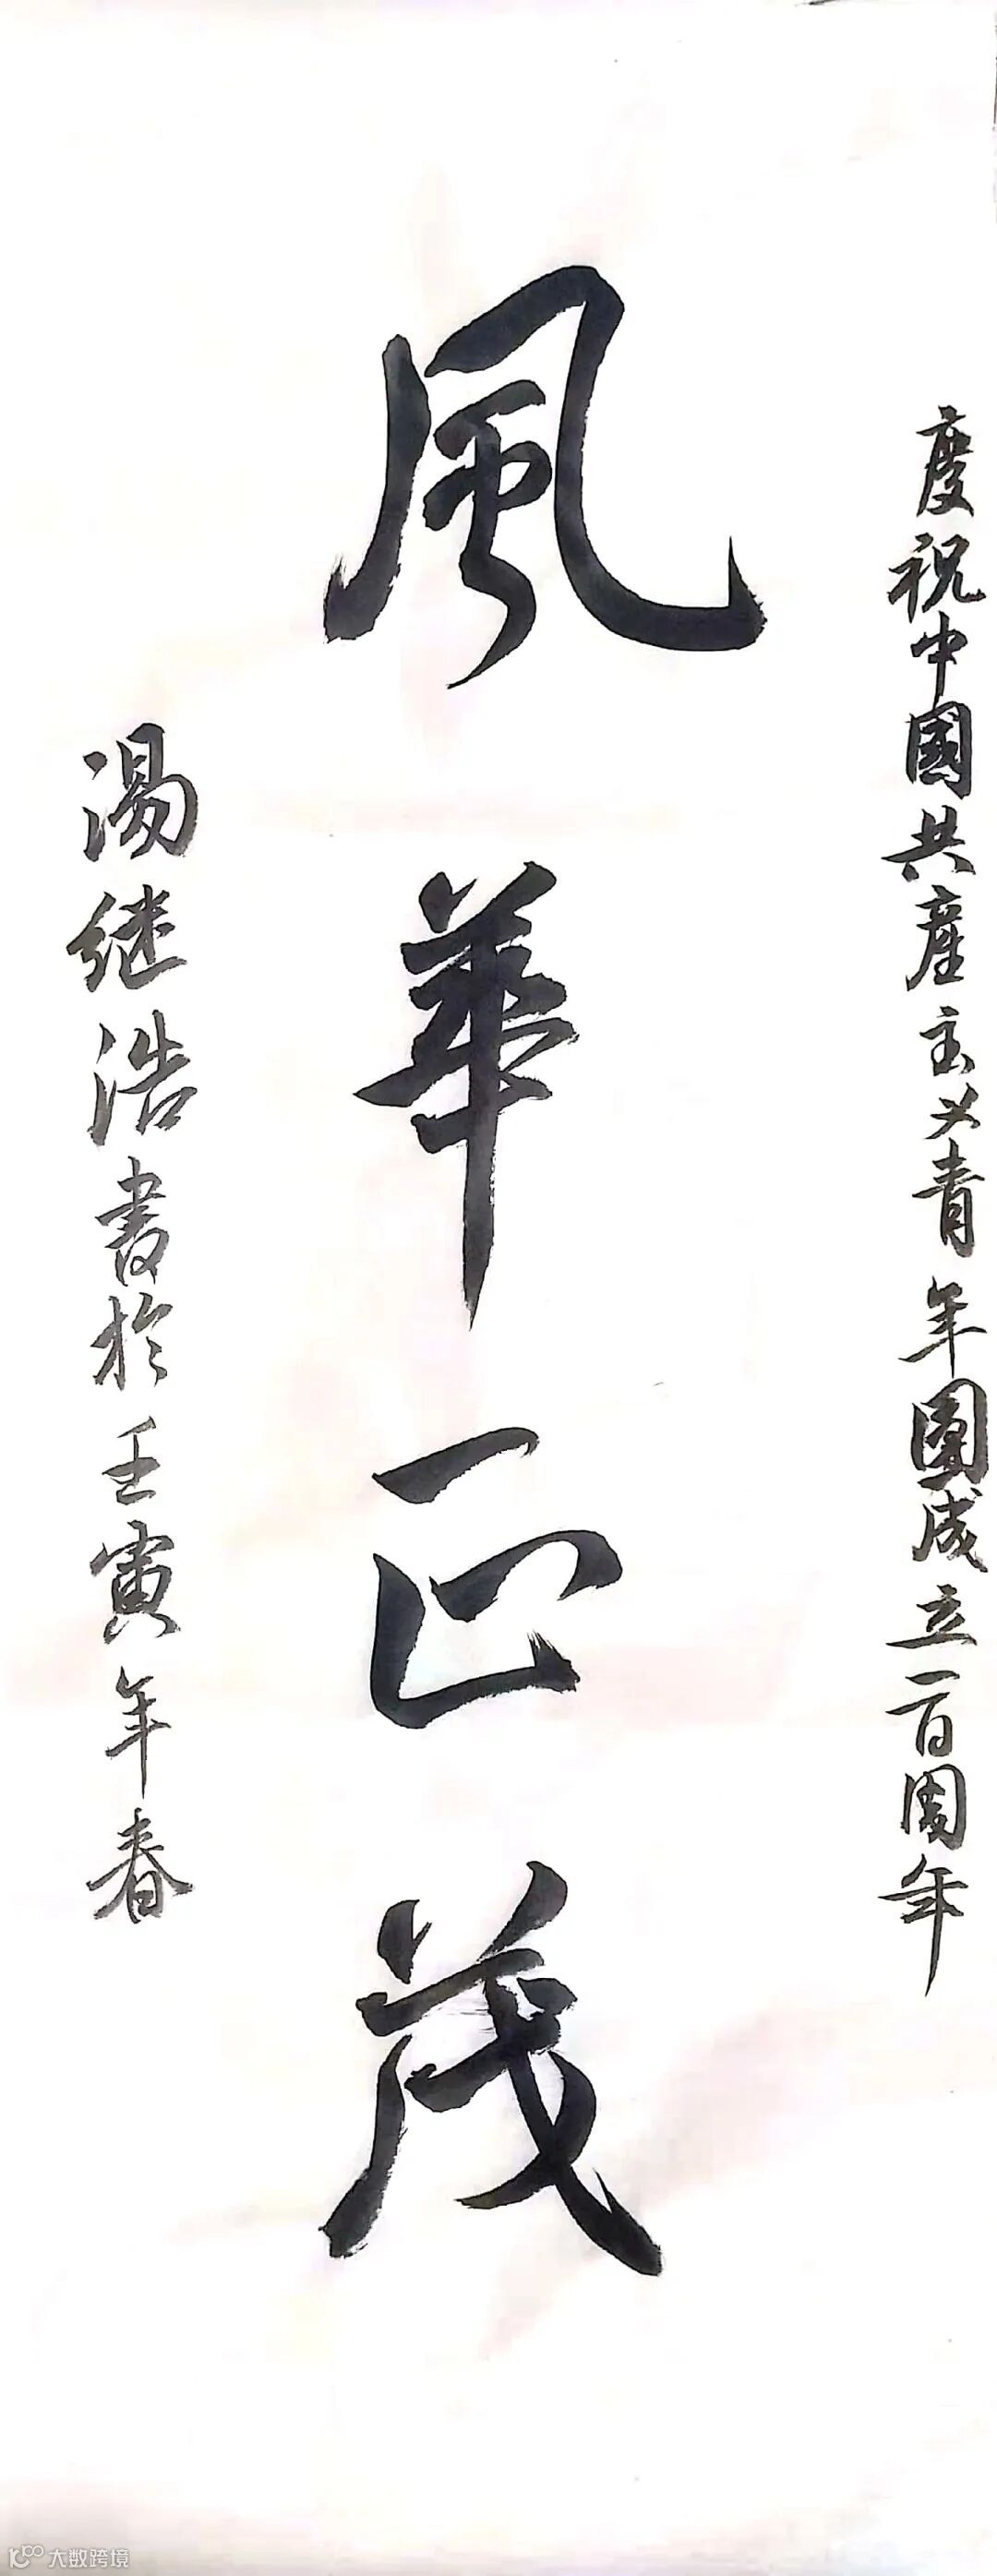 慶祝中國共產主义青年團成立一百周年
風華正茂
湯继浩書於壬寅年春
大数跨境